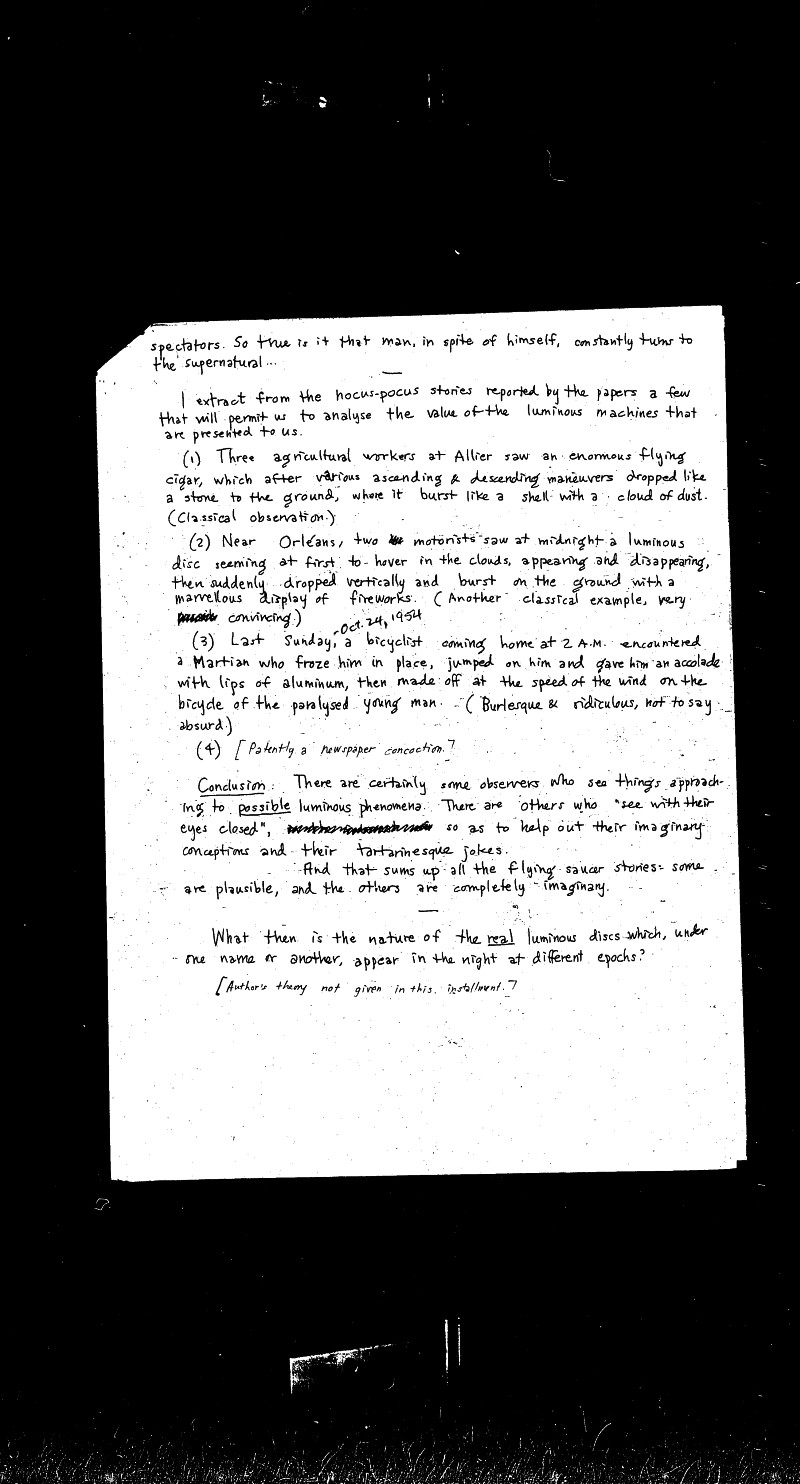 spectators. So true is it that man, in spite of himself, constantly turns to
the supernatural...
I extract from the hocus-pocus stories reported by the papers a few
that will permit us to analyse the value of the luminous machines that
are presented to us.
(1) Three agricultural workers at Allier saw an enormous flying
cigar, which after various ascending & descending maneuvers dropped like
a stone to the ground, where it burst like a shell with a cloud of dust.
(Classical observation.)
(2) Near Orléans, two motorists saw at midnight a luminous
disc seeming at first to hover in the clouds, appearing and disappearing,
then suddenly dropped vertically and burst on the ground with a
marvellous display of fireworks. (Another classical example, very
convincing.)
-Oct. 24, 1954
(3) Last Sunday, a bicyclist coming home at 2 A.M. encountered
a Martian who froze him in place, jumped on him and gave him an accolade
with lips of aluminum, then made off at the speed of the wind on the
bicycle of the paralysed young man. (Burlesque & ridiculous, not to say
absurd.)
(4) [Patently a newspaper concoction.]
Conclusion: There are certainly some observers who see things approach-
ing to possible luminous phenomena. There are others who "see with their
eyes closed", so as to help out their imaginary
conceptions and their tartarinesque jokes.
And that sums up all the flying saucer stories: some
are plausible, and the others are completely imaginary.
What then is the nature of the real luminous discs which, under
one name or another, appear in the night at different epochs?
[Author's theory not given in this installment.]